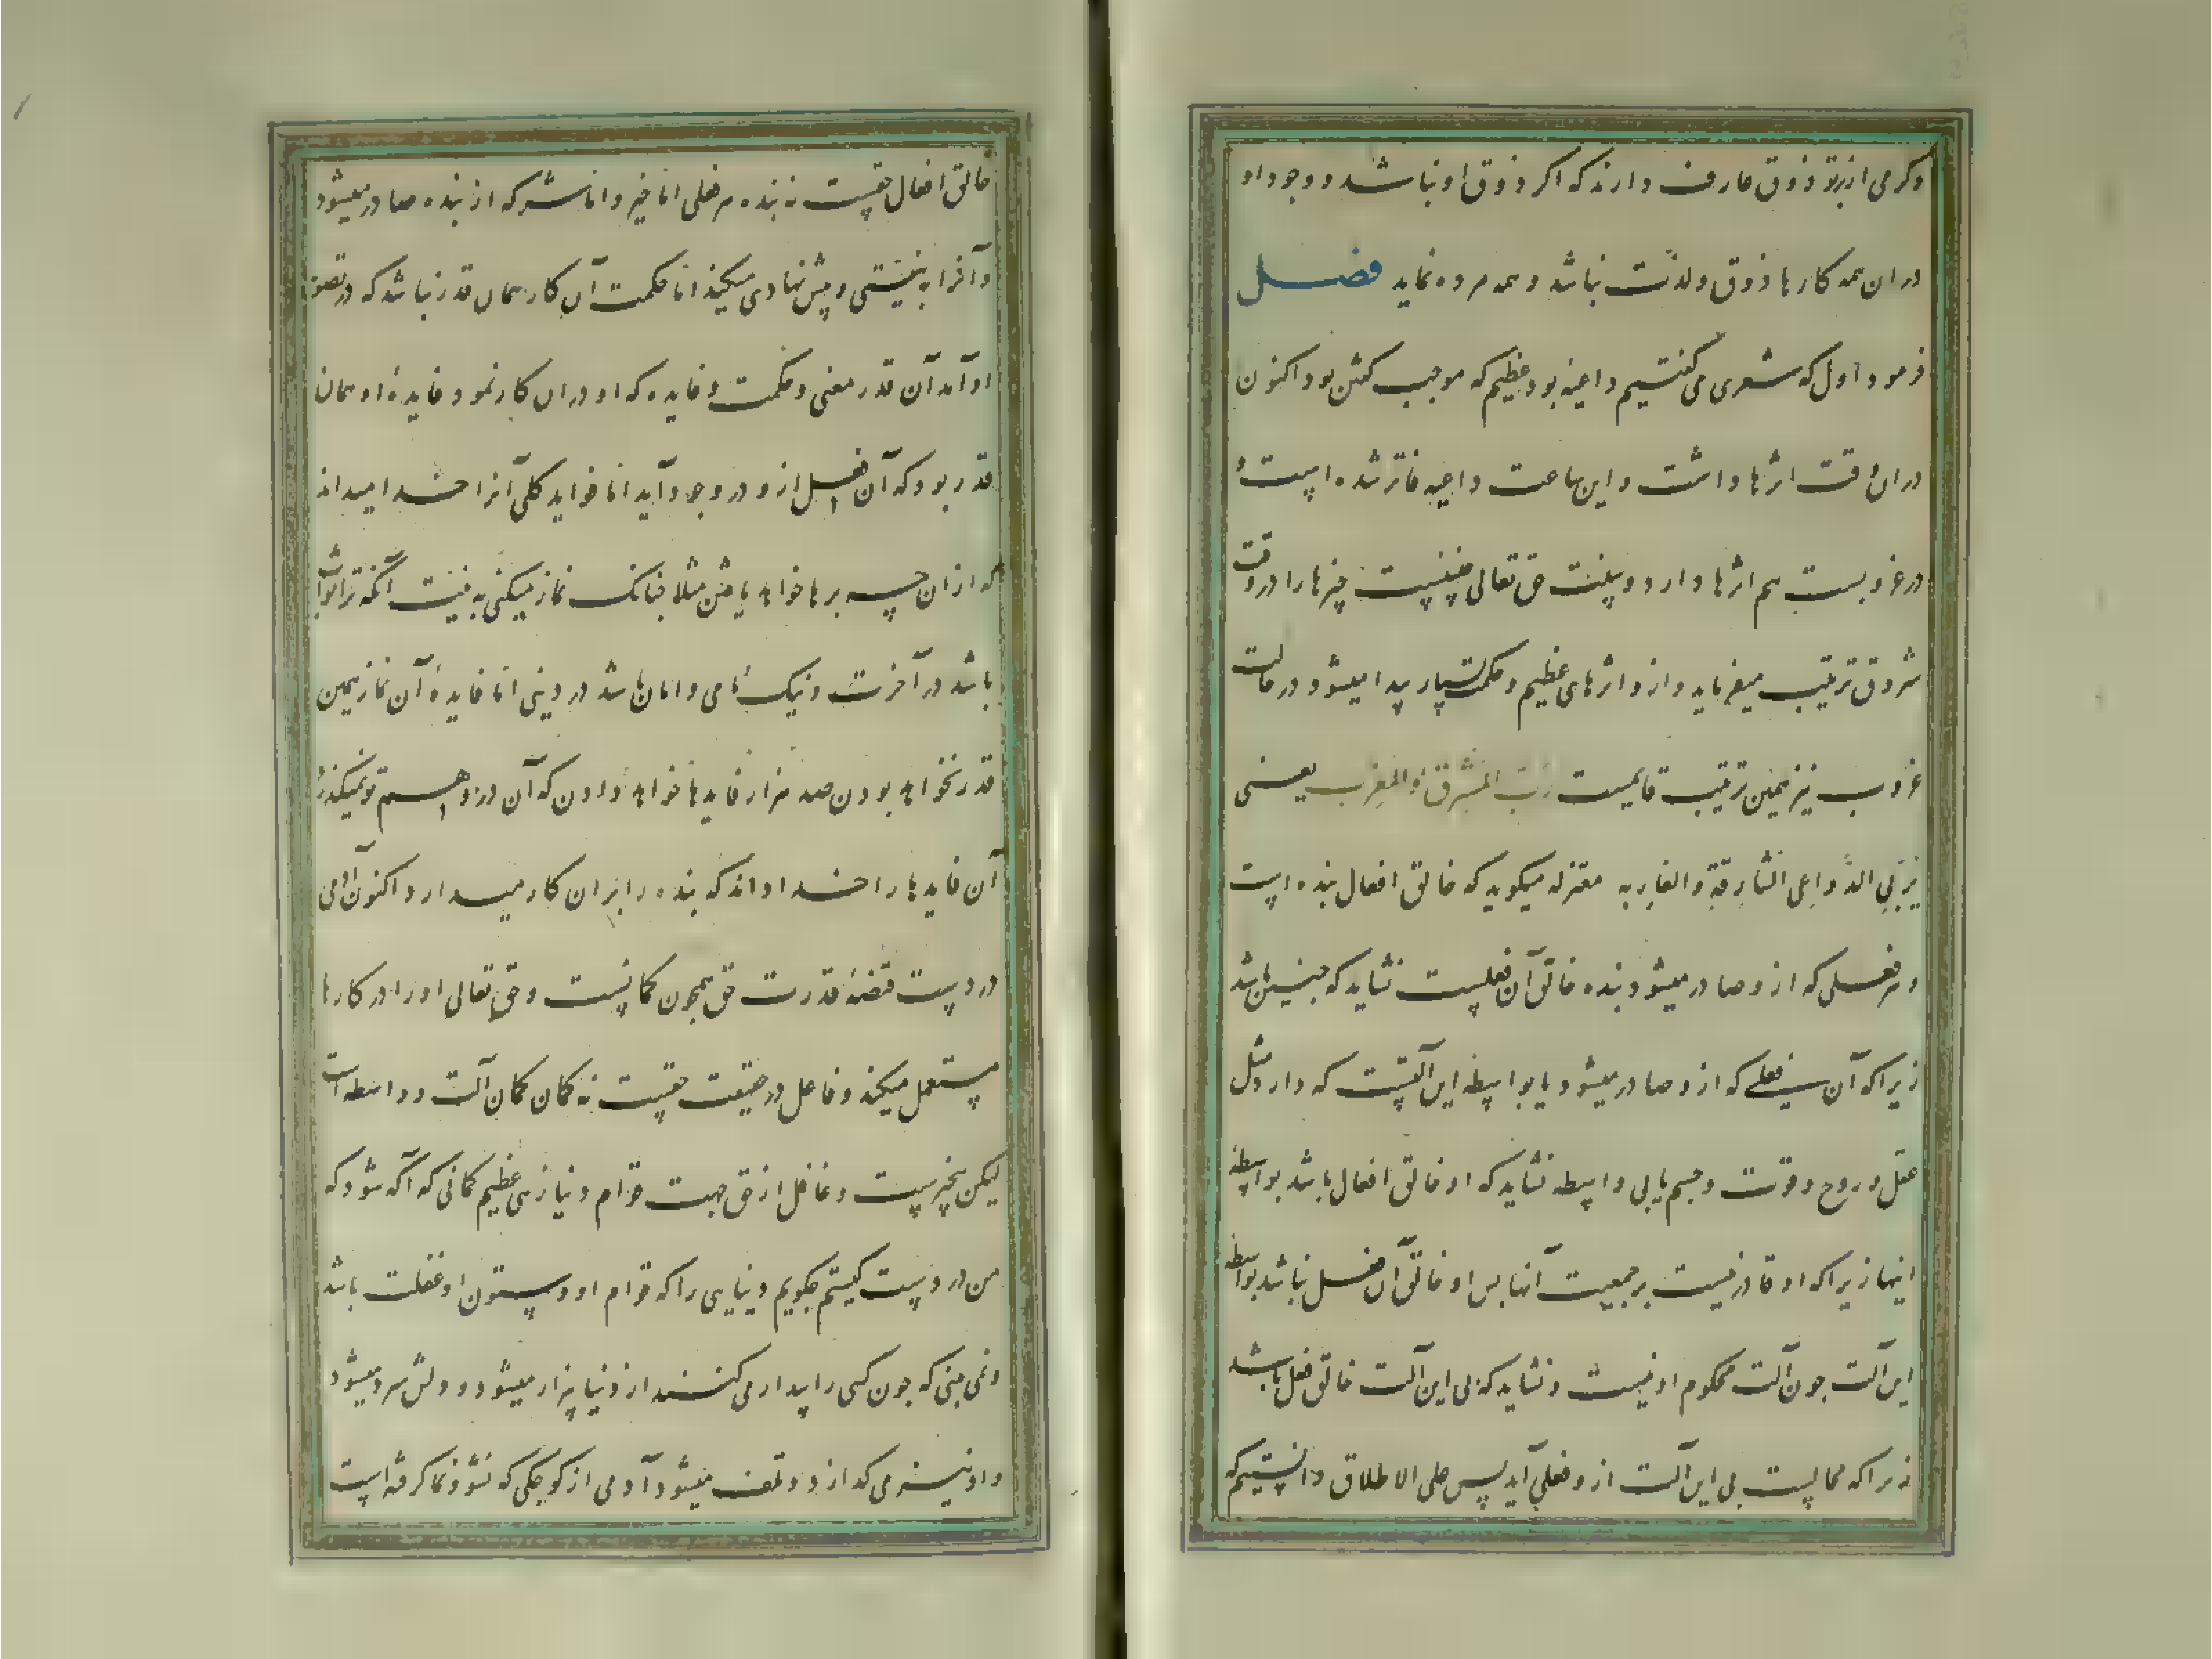 وکرمی از پرتو ذوق عارف دارند که اگر ذوق او نباشد و وجود او
در ان همه کارها ذوق و لذّت نباشد و همه مرده نماید فصل
فرمود اول که شعری می گفتیم داعیهٔ بود عظیم که موجب گفتن بود اکنون
در ان وقت اثرها داشت و این ساعت داعیه فاتر شده است و
در غروبست هم اثرها دارد و سنّت حق تعالی چنینست چیزها را در وقت
شروق تربیت میفرماید و ازو اثرهای عظیم و حکمت بسیار پیدا میشود در حالت
غروب نیز همین تربیت قایمست رب المشرق و المغرب یعنی
یربّی الدّواعی الشارقة و الغاربه معتزله میگوید که خالق افعال بنده است
و هر فعلی که ازو صادر میشود بنده خالق آن فعلست نشاید که چنین باشد
زیرا که آن فعلی که ازو صادر میشود یا بواسطه این آلتست که دارد مثل
عقل و روح و قوت و جسم یا بی واسطه نشاید که او خالق افعال باشد بواسطهٔ
اینها زیرا که او قادر نیست بر جمعیت آنها پس او خالق آن فعل نباشد بواسطه
این آلت چون آلت محکوم او نیست و نشاید که بی این آلت خالق فعل باشد
زیرا که محالست بی این آلت ازو فعلی آید پس علی الاطلاق دانستیم که
خالق افعال حقست نه بنده هر فعلی امّا خیر و امّا شر که از بنده صادر میشود
و آنرا به نیّتی و پیش نهادی میکند امّا حکمت آن کار همان قدر نباشد که در تصوّر
او آمد آن قدر معنی و حکمت و فایده که او در ان کار نمود فایدهٔ او همان
قدر بود که آن فعل ازو در وجود آید امّا فواید کلّی آنرا خدا میداند
که از ان چه برها خواهد یافتن مثلا چنانک نماز میکنی به نیّت آنکه ترا ثواب
باشد در آخرت و نیک نامی و امان باشد در دنیی امّا فایدهٔ آن نماز همین
قدر نخواهد بودن صد هزار فایدها خواهد دادن که آن در وهم تو نمیگذرد
آن فایدها را خدا داند که بنده را بر ان کار میدارد اکنون آدمی
در دست قبضهٔ قدرت حق همچون کمانست و حق تعالی او را در کارها
مستعمل میکند و فاعل در حقیقت حقست نه کمان کمان آلت و واسطه است
لیکن بیخبرست و غافل از حق جهت قوام دنیا زهی عظیم کمانی که آگه شود که
من در دست کیستم چگویم دنیایی را که قوام او و ستون او غفلت باشد
و نمی بینی که چون کسی را بیدار می کنند از دنیا بیزار میشود و دلش سرد میشود
و او نیز می گدازد و تلف میشود آدمی از کوچکی که نشو و نما گرفته است